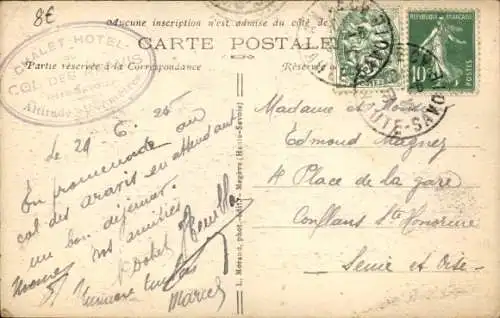 8€
Aucune inscription n'est admise du côté de
CARTE POSTALE
Partie réservée à la Correspondance
CHALET-HOTEL
COL DES ARAVIS
Altitude
REPUBLIQUE FRANÇAISE
10c
POSTES
HAUTE-SAVOIE
Le 29.6.25
En promenade au
col des aravis en attendant
un bon déjeuner.
nos amitiés
Marcel
L. Morand, phot. édit., Megève (Haute-Savoie)
Madame et
Edmond Magnez
4 Place de la gare
Conflans Ste Honorine
Seine et Oise